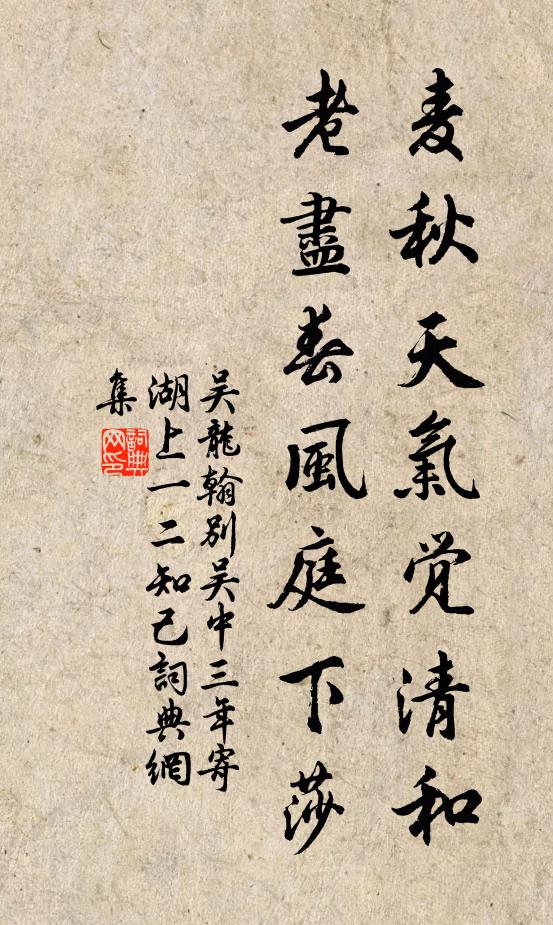 麦秋天氣觉清和
老盡春風庭下莎
吴龍翰别吴中三年寄
湖上一二知己詞典網
集
詞典網印